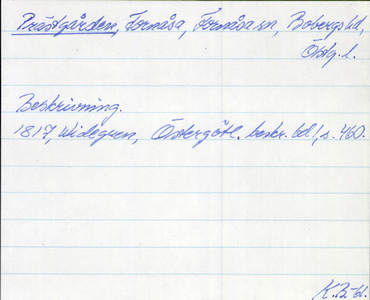 Prästgården, Fornåsa, Fornåsa sn, Bobergs hd,
Östg. l.
Beskrivning.
1817, Widegren, Östergötl. beskr. bd 1, s. 460.
K.B-bl.